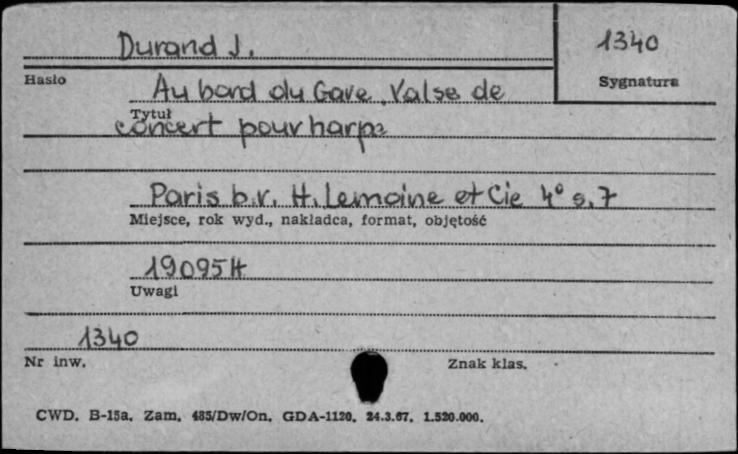 Durand J.
1340
Hasło
Sygnatura
Au bord du Gave. Valse de
Tytuł
concert pour harpe
Paris b.r. H. Lemoine et Cie 4° s. 7
Miejsce, rok wyd., nakładca, format, objętość
19095H
Uwagi
1340
Nr inw.
Znak klas.
CWD. B-15a. Zam. 485/Dw/On. GDA-1120. 24.3.67. 1.520.000.